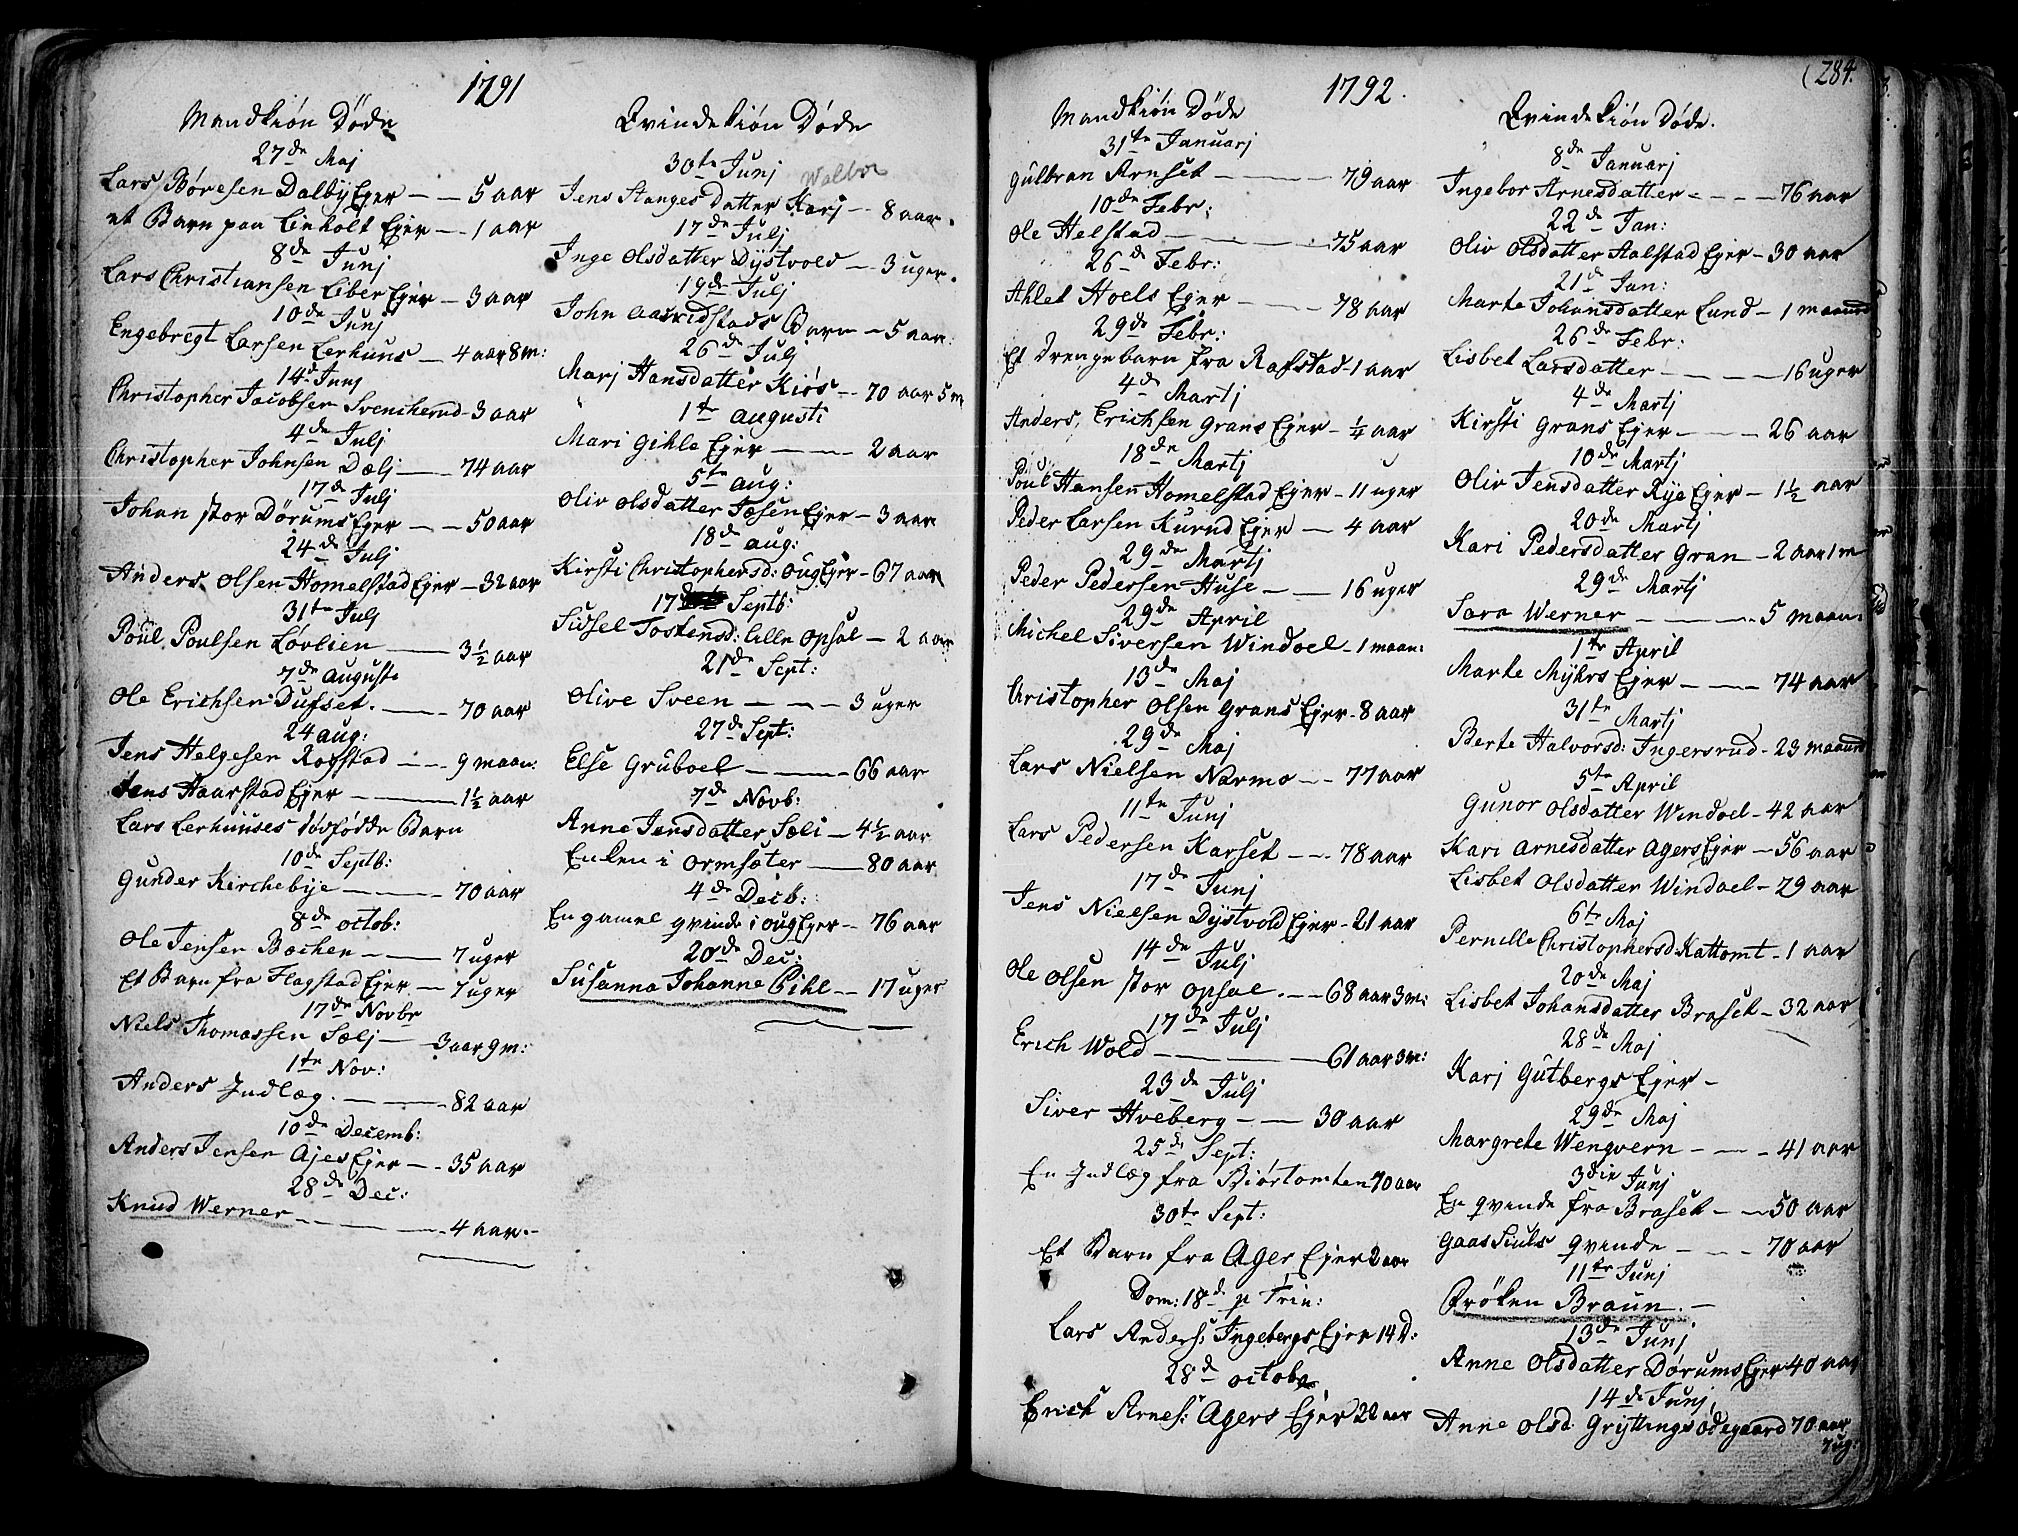 1791
Mandkiøn Døde
27de Maj
Lars Børesen Dalby Ejer — 5 aar
et Barn paa Linholt Ejer — 1 aar
8de Junj
Lars Christiansen Liber Ejer — 3 aar
10de Junj
Engebregt Larsen Lerhuus — 4 aar 8 m:
14d Junj
Christopher Jacobsen Svencherud — 3 aar
4de Julj
Christopher Johnsen Dælj — 74 aar
17de Julj
Johan stor Dørums Ejer — 50 aar
24de Julj
Anders Olsen Homelstad Ejer — 32 aar
31te Julj
Poul Poulsen Løvlien — 3 1/2 aar
7de Augusti
Ole Erichsen Dufset — 70 aar
24 aug:
Jens Helgesen Rofstad — 9 maan:
Jens Haarstad Ejer — 1 1/2 aar
Lars Lerhuuses dødfødde Barn
10de Septb:
Gunder Kirchebye — 70 aar
8de octob:
Ole Jensen Bæchen — 7 uger
Et Barn fra Flagstad Ejer — 7 uger
17de Novbr
Niels Thomassen Sælj — 3 aar 9 m:
1te Nov:
Anders Indlæg — 82 aar
10de Decemb:
Anders Jensen Ajes Ejer — 35 aar
28de Dec:
Knud Werner — 4 aar
Qvindekiøn Døde
30te Junj
Walbor
Jens Stanges Datter Karj — 8 aar
17de Julj
Inge Olsdatter Dystvold — 3 uger
19de Julj
John Aasridstads Barn — 5 aar
26de Julj
Marj Hansdatter Kiøs — 70 aar 5 m
1te augusti
Mari Gihle Ejer — 2 aar
5te aug:
Oliv Olsdatter Josen Ejer — 3 aar
18de aug:
Kirsti Christophersd: oug Ejer — 67 aar
17 Septb:
Sidsel Tostensd: lille Opsal — 2 aar
21de Sept:
Olive Sveen — 3 uger
27de Sept:
Else Gruboel — 66 aar
7de Novb:
Anne Jensdatter Sæli — 4 1/2 aar
Enken i Ormsæter — 80 aar
4de Decb:
En gamel qvinde i oug Ejer — 76 aar
20de Dec:
Susanna Johanne Pihl — 17 uger
1792.
(284.
Mandkiøn Døde
31te Januarj
Gulbran Arnset — 79 aar
10de Febr:
Ole Helstad — 75 aar
26de Febr:
Ahlet Hoels Ejer — 78 aar
29de Febr:
Et Drengebarn fra Rofstad — 1 aar
4de Martj
Anders Erichsen Grans Ejer — 1/4 aar
18de Martj
Poul Hansen Homelstad Ejer — 11 uger
Peder Larsen Kurud Ejer — 4 aar
29de Martj
Peder Pedersen Huse — 16 uger
29de April
Michel Siversen Windoel — 1 maan:
13de Maj
Christopher Olsen Grans Ejer — 8 aar
29de Maj
Lars Nielsen Narmo — 77 aar
11te Junj
Lars Pedersen Karset — 78 aar
17de Junj
Jens Nielsen Dystvold Ejer — 21 aar
14de Julj
Ole Olsen stor Opsal — 68 aar 3 m:
17de Julj
Erich Wold — 61 aar 3 m:
23de Julj
Siver Hveberg — 30 aar
25de Sept:
En Indlæg fra Biørtomten 70 aar
30te Sept:
Et Barn fra Ager Ejer 2 aar
Dom: 18de p Trin:
Lars Anders: Ingebergs Ejer 14 D:
28d octobr
Erich Arnes: Agers Ejer 22 aar
Qvindekiøn Døde.
8de Januarj
Ingebor Arnesdatter — 76 aar
22de Jan:
Oliv Olsdatter Aalstad Ejer — 30 aar
21d Jan:
Marte Johansdatter Lund — 1 maaned
26de Febr:
Lisbet Larsdatter — 16 uger
4de Martj
Kirsti Grans Ejer — 26 aar
10de Martj
Oliv Jensdatter Rye Ejer — 1 1/2 aar
20de Martj
Kari Pedersdatter Gran — 2 aar 1 m
29de Martj
Sara Werner — 5 maan:
1te April
Marte Myhrs Ejer — 74 aar
31te Martj
Berte Halvorsd: Ingersrud — 23 maaned
5te April
Gunor Olsdatter Windoel — 42 aar
Kari Arnesdatter Agers Ejer — 56 aar
Lisbet Olsdatter Windoel — 29 aar
6te Maj
Pernille Christophersd Kattomt — 1 aar
20de Maj
Lisbet Johansdatter Braset — 32 aar
28de Maj
Karj Gutbergs Ejer —
29de Maj
Margrete Wengvern — 41 aar
3die Junj
En qvinde fra Braset — 50 aar
Gaas Siuls qvinde — 70 aar
11te Junj
Frøken Braun. —
13de Junj
Anne Olsdatter Dørums Ejer 40 aar
14de Junj
Anne Olsd Gryttings ødegaard 70 aar
7 ug: